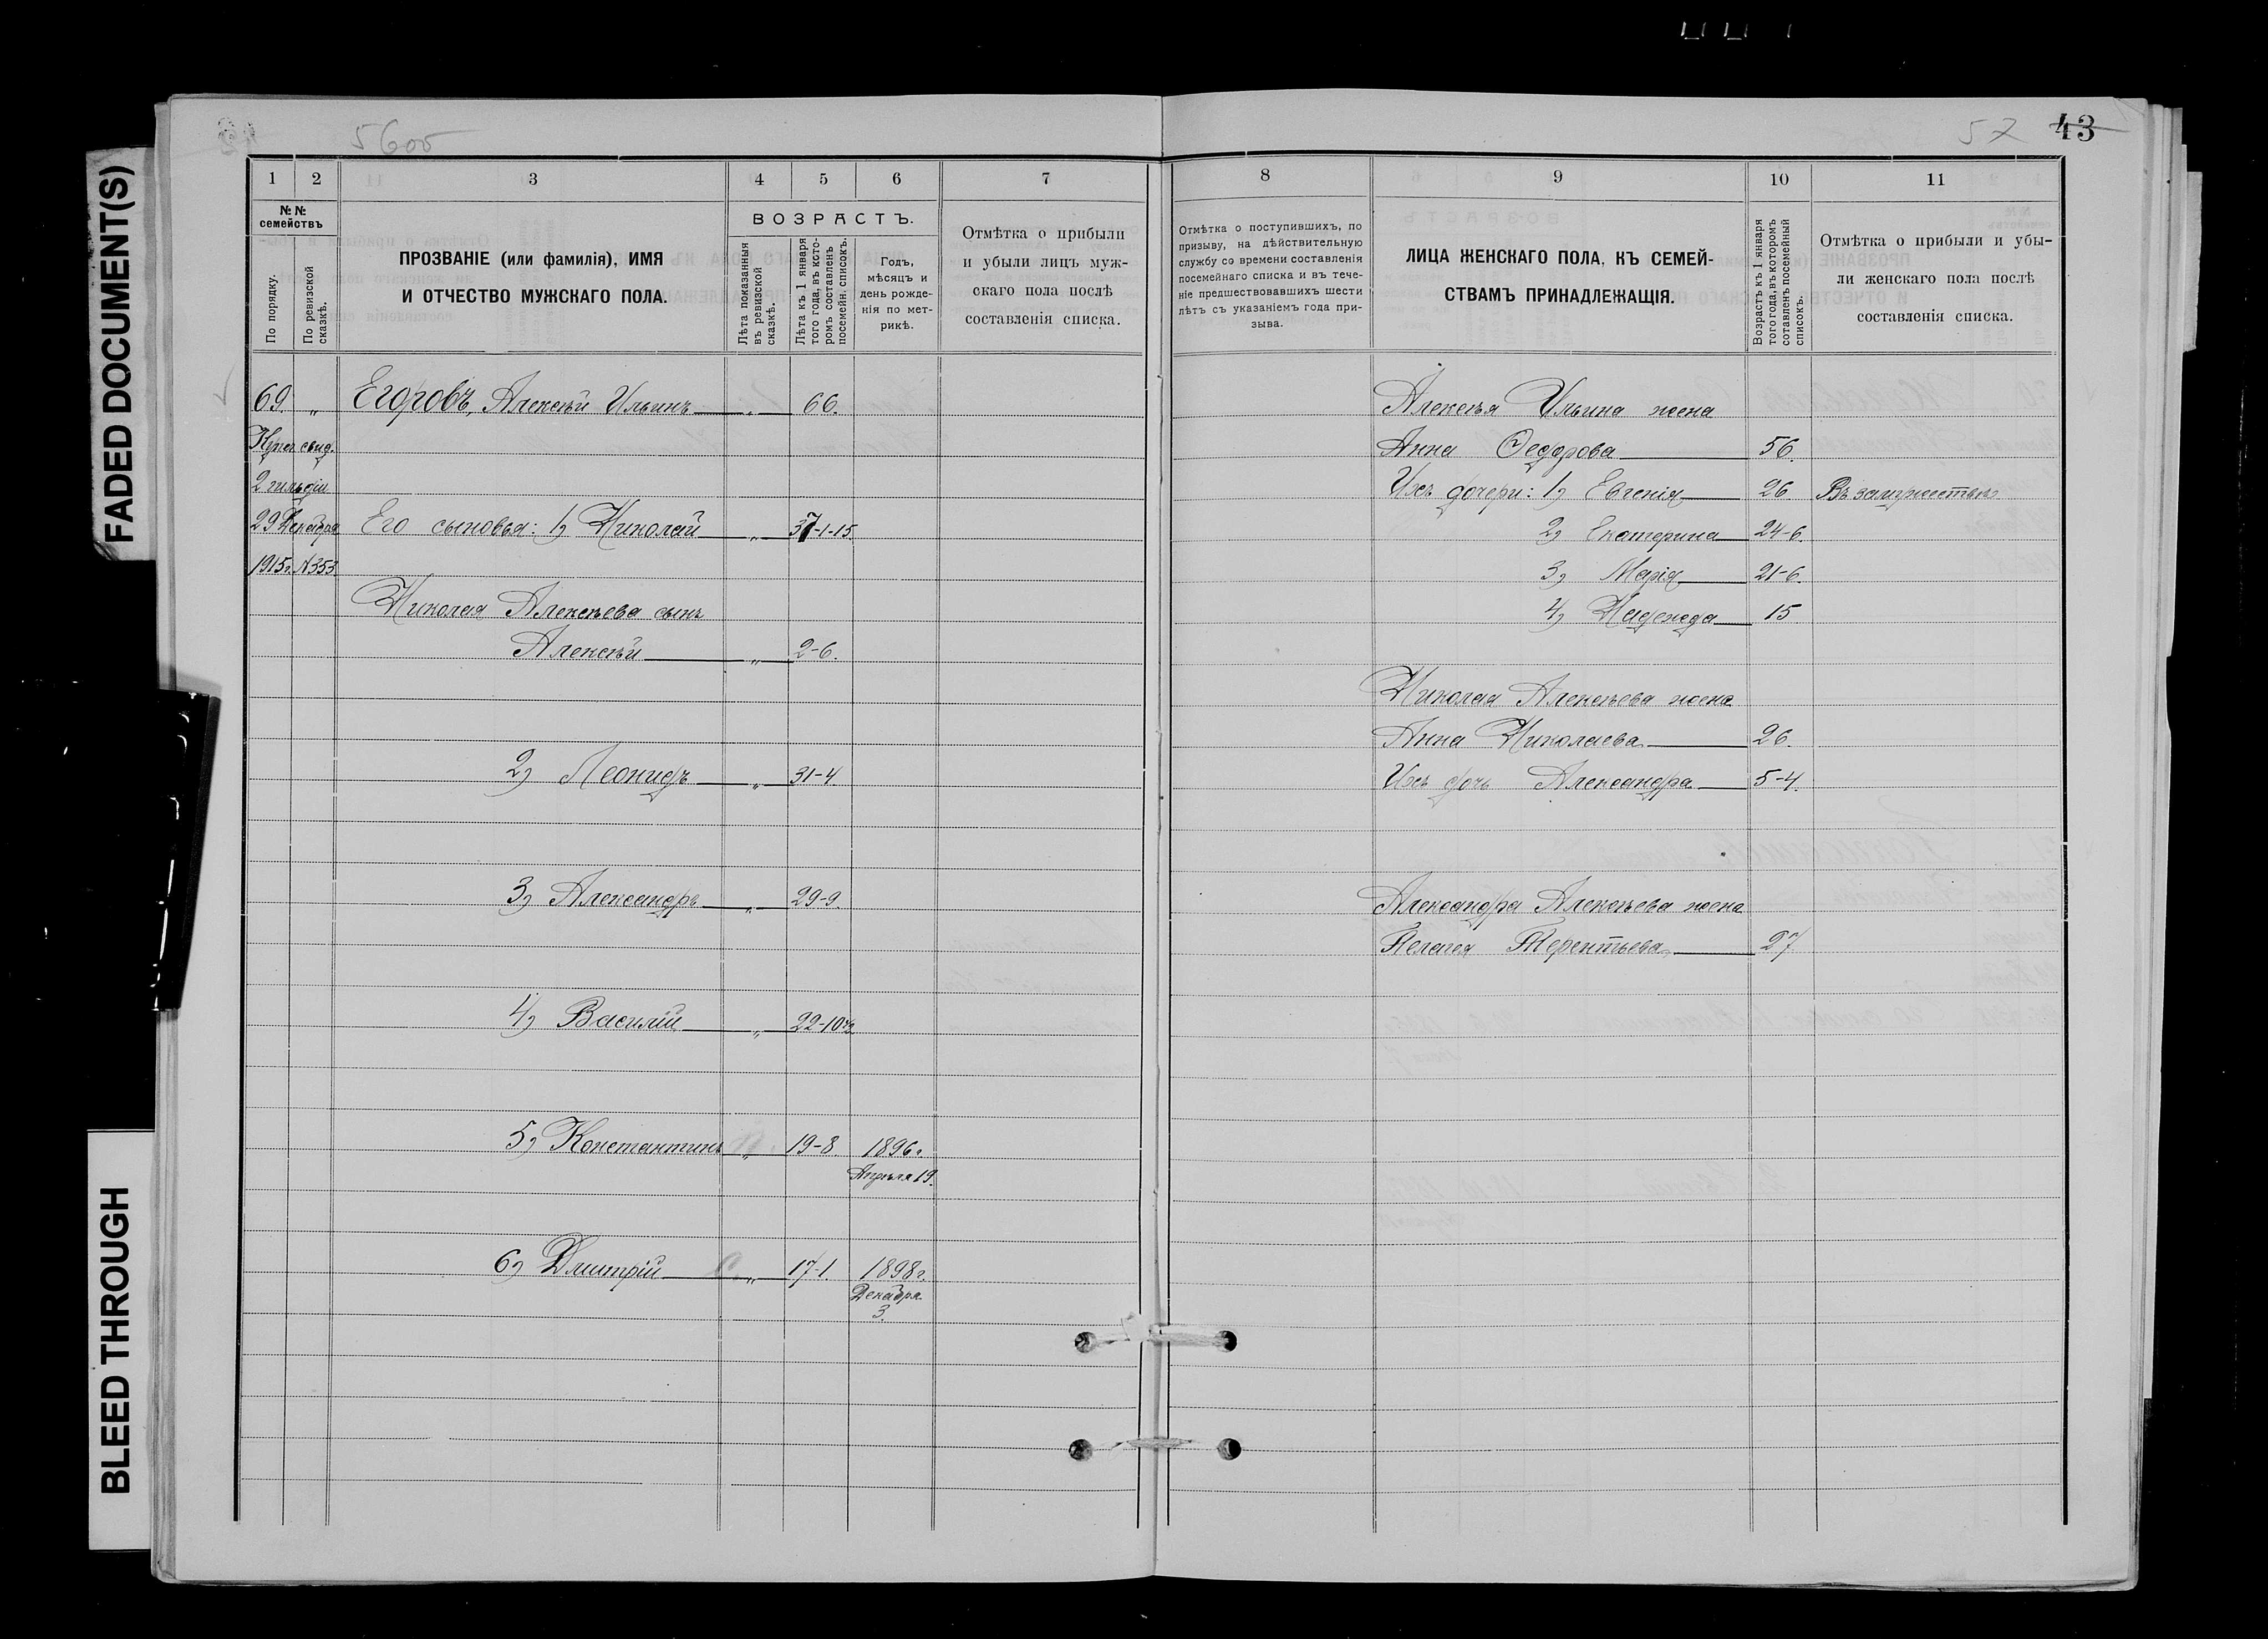 FADED DOCUMENT(S)
BLEED THROUGH
5600
57 43
1 2 3 4 5 6 7
№ № семействъ
По порядку.
По ревизской сказкѣ.
ПРОЗВАНІЕ (или фамилія), ИМЯ
И ОТЧЕСТВО МУЖСКАГО ПОЛА.
ВОЗРАСТЪ.
Лѣта показанныя въ ревизской сказкѣ.
Лѣта къ 1 января того года, въ которомъ составленъ посемейн. списокъ.
Годъ,
мѣсяцъ и
день рожде-
нія по мет-
рикѣ.
Отмѣтка о прибыли
и убыли лицъ муж-
скаго пола послѣ
составленія списка.
69. „ Егоровъ, Алексѣй Ильинъ „ 66.
Купеч. свид.
2 гильдіи
29 Декабря Его сыновья: 1) Николай „ 37-1-15.
1915г. №353
Николая Алексѣева сынъ
Алексѣй „ 2-6.
2) Леонидъ „ 31-4.
3) Александръ „ 29-9.
4) Василій „ 22-10½
5) Константинъ „ 19-8 1896г.
Апрѣля 19.
6) Дмитрій „ 17-1. 1898г.
Декабря
3.
8 9 10 11
Отмѣтка о поступившихъ, по
призыву, на дѣйствительную
службу со времени составленія
посемейнаго списка и въ тече-
ніе предшествовавшихъ шести
лѣтъ съ указаніемъ года при-
зыва.
ЛИЦА ЖЕНСКАГО ПОЛА, КЪ СЕМЕЙ-
СТВАМЪ ПРИНАДЛЕЖАЩІЯ.
Возрастъ къ 1 января
того года, въ которомъ
сотавленъ посемейный
списокъ.
Отмѣтка о прибыли и убы-
ли женскаго пола послѣ
составленія списка.
Алексѣя Ильина жена
Анна Ѳедорова 56.
Ихъ дочери: 1) Евгенія 26 Въ замужествѣ
2) Екатерина 24-6.
3) Марія 21-6.
4) Надежда 15
Николая Алексѣева жена
Анна Николаева 26.
Ихъ дочь Александра 5-4.
Александра Алексѣева жена
Пелагея Терентьева 27